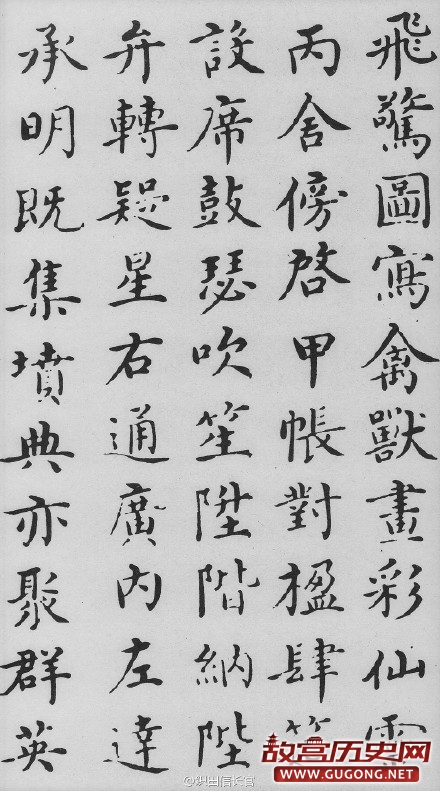 飛驚圖寫禽獸畫彩仙
丙舍傍啓甲帳對楹肆
設席鼓瑟吹笙陞階納陛
弁轉疑星右通廣內左達
承明既集墳典亦聚群英
故宫历史网
WWW.GUGONG.NET